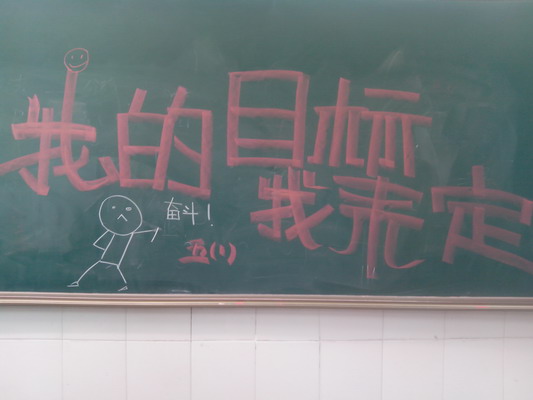 我的目标
我来定
奋斗!
五(1)